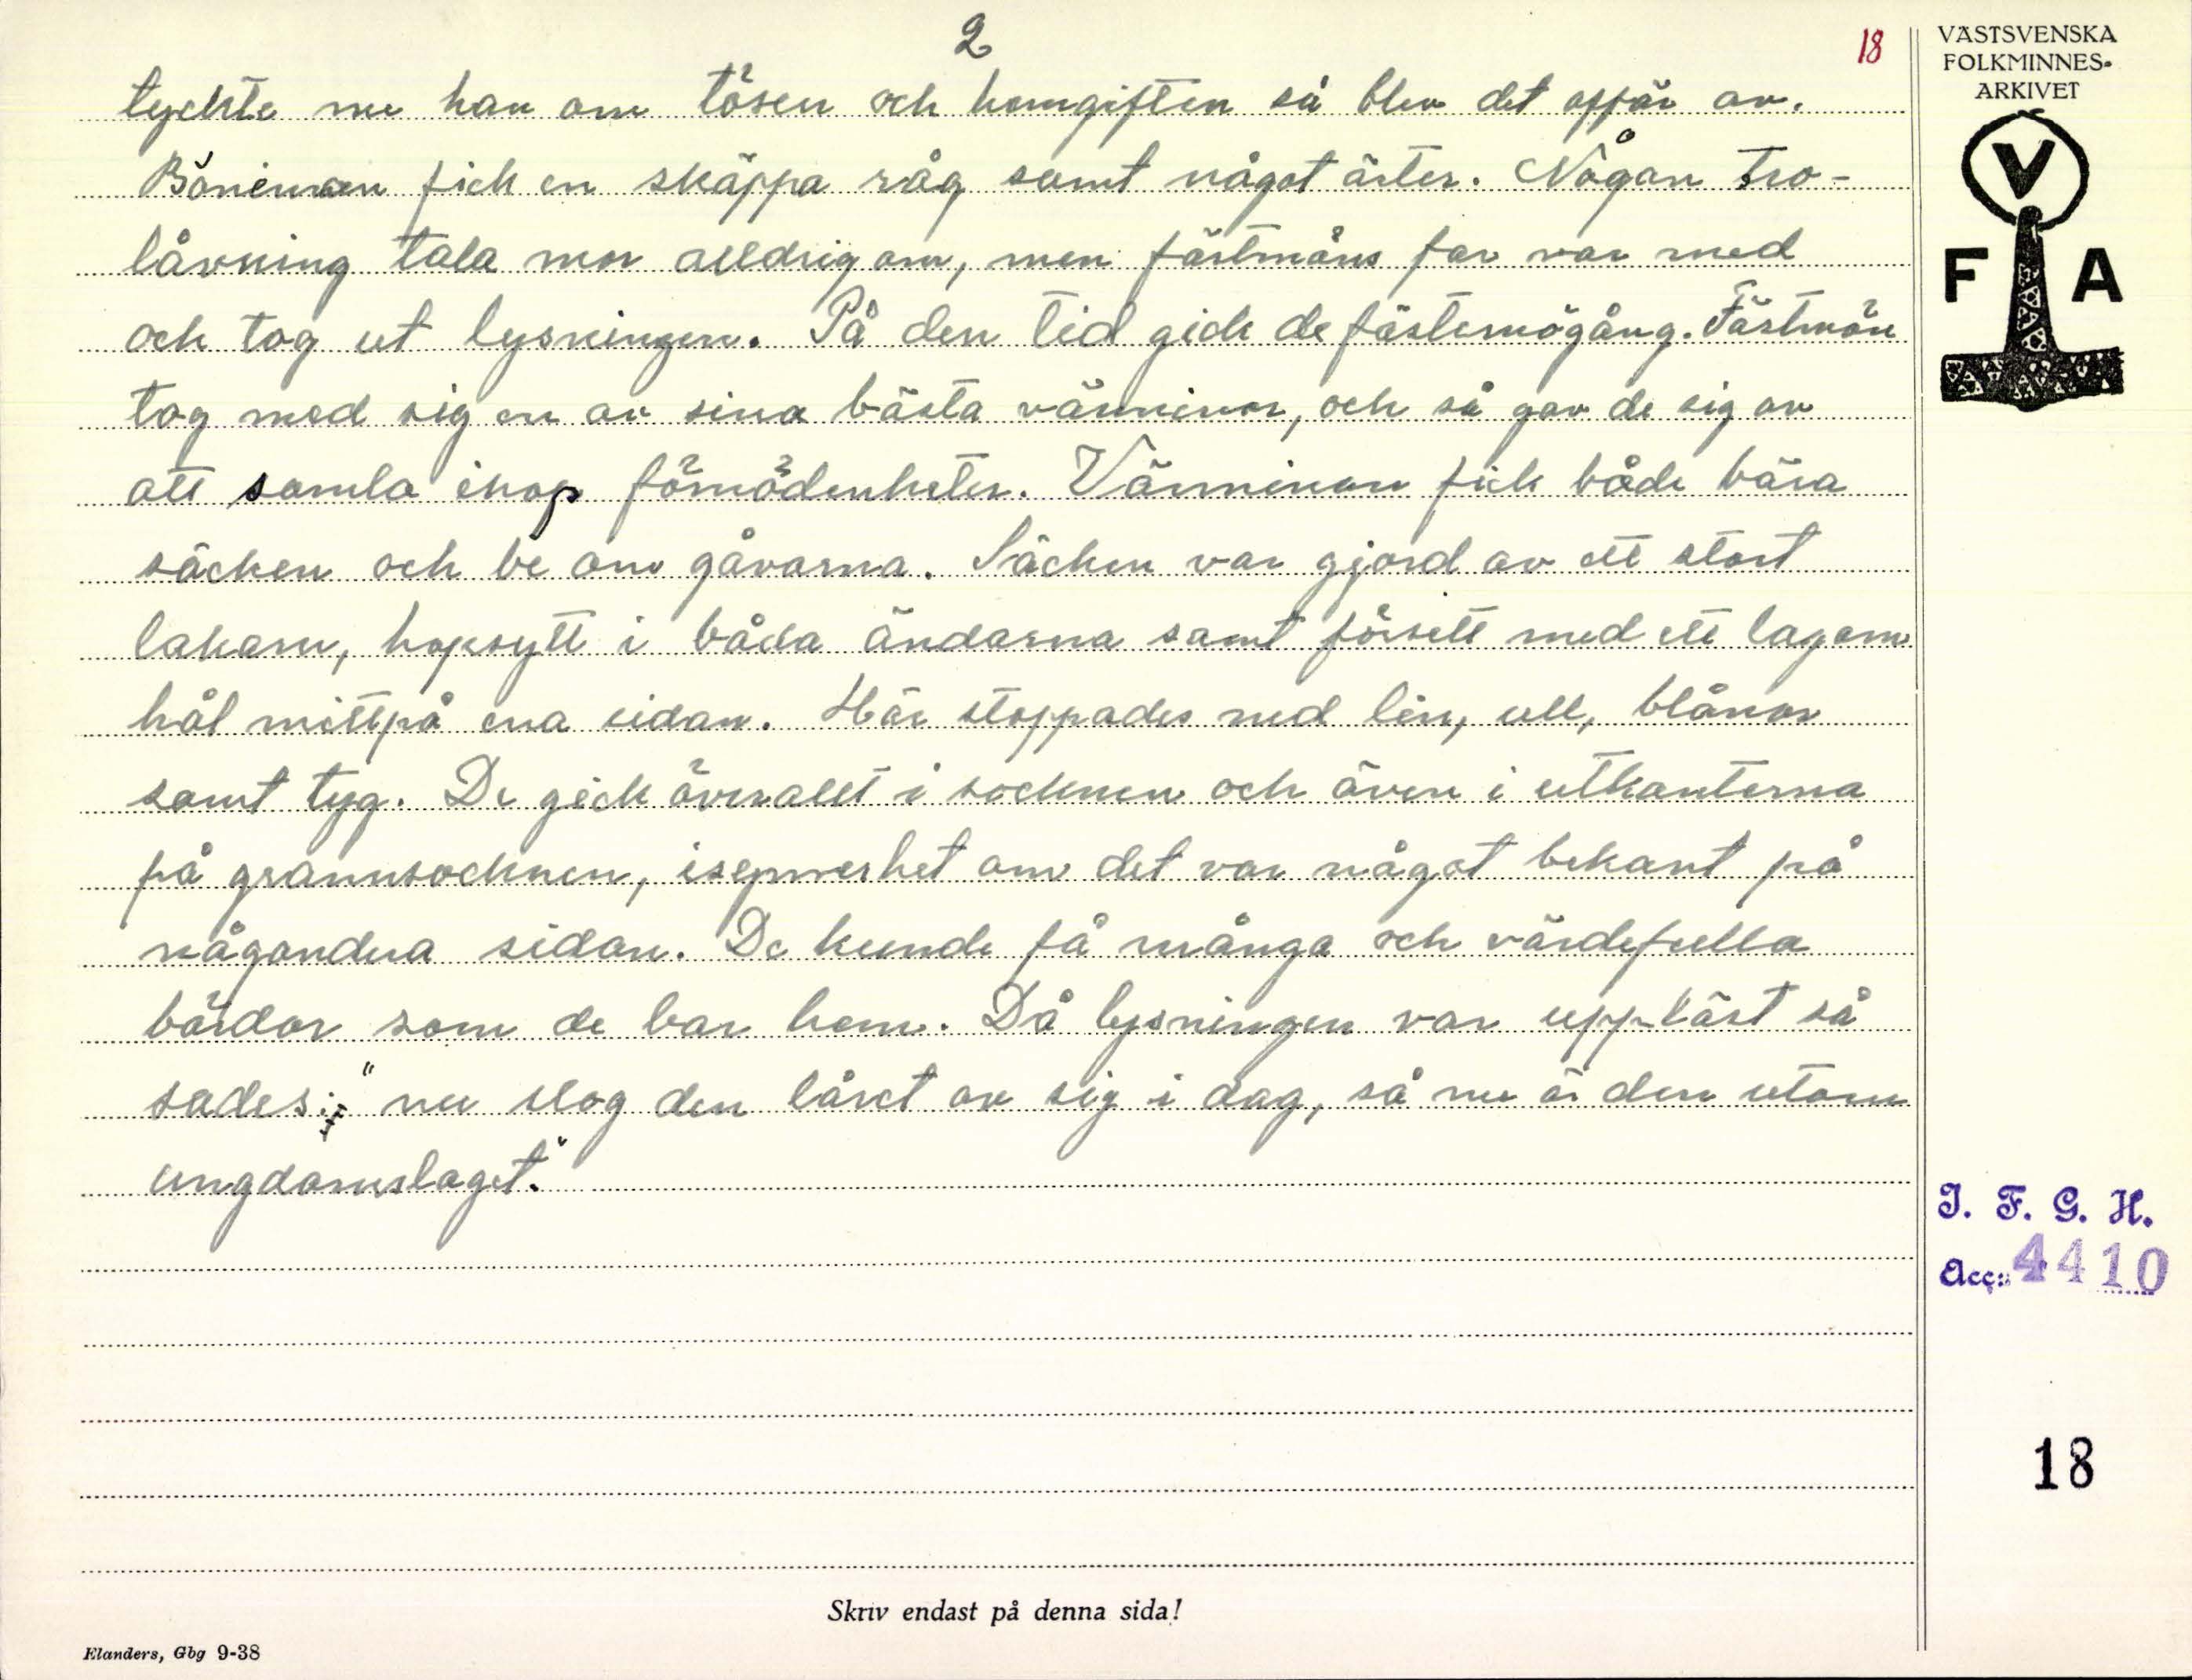 2
18
tyckte nu han om tösen och hemgiften så blev det affär av.
Bönemannen fick en skäppa råg samt något ärter. Någon tro-
låvning tala mor alldrig om, men fästmöns far var med
och tog ut lysningen. På den tid gick de fästemögång. Fästmön
tog med sig en av sina bästa vänninor, och så gav de sig av
att samla ihop förnödenheter. Vänninan fick både bära
säcken och be om gåvorna. Säcken var gjord av ett stort
lakarn, hopsytt i båda ändarna samt försett med ett lagom
hål mittpå ena sidan. Här stoppades ned lin, ull, blånor
samt tyg. De gick överallt i socknen och även i utkanterna
på grannsocknen, isynnerhet om det var något bekant på
någondera sidan. De kunde få många och värdefulla
bördor som de bar hem. Då lysningen var uppläst så
sades: "nu slog den låret av sig i dag, så nu är den utom
ungdomslaget."
VÄSTSVENSKA
FOLKMINNES-
ARKIVET
V
F A
I. F. G. H.
Acc: 4410
18
Skriv endast på denna sida!
Elanders, Gbg 9-38